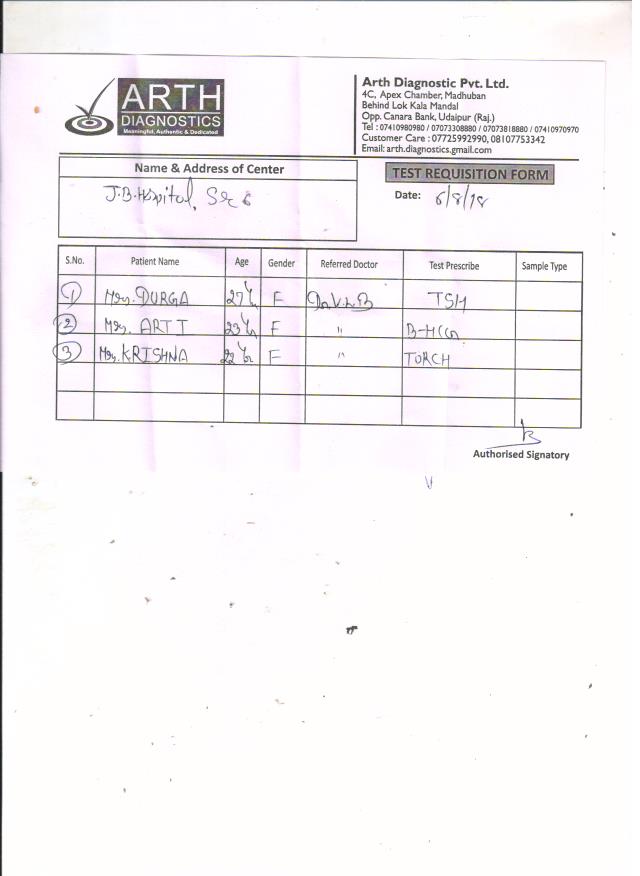 ARTH
DIAGNOSTICS
Meaningful, Authentic & Dedicated
Arth Diagnostic Pvt. Ltd.
4C, Apex Chamber, Madhuban
Behind Lok Kala Mandal
Opp. Canara Bank, Udaipur (Raj.)
Tel : 07410980980 / 07073308880 / 07073818880 / 07410970970
Customer Care : 07725992990, 08107753342
Email: arth.diagnostics.gmail.com
Name & Address of Center
J.B. Hospital, Sec 6
TEST REQUISITION FORM
Date: 6/8/18
S.No. Patient Name Age Gender Referred Doctor Test Prescribe Sample Type
1 Mrs. DURGA 27 Yr F TSH
2 Mrs. ARTI 23 Yr F " B-HCG
3 Mrs. KRISHNA 22 Yr F " TORCH
Authorised Signatory